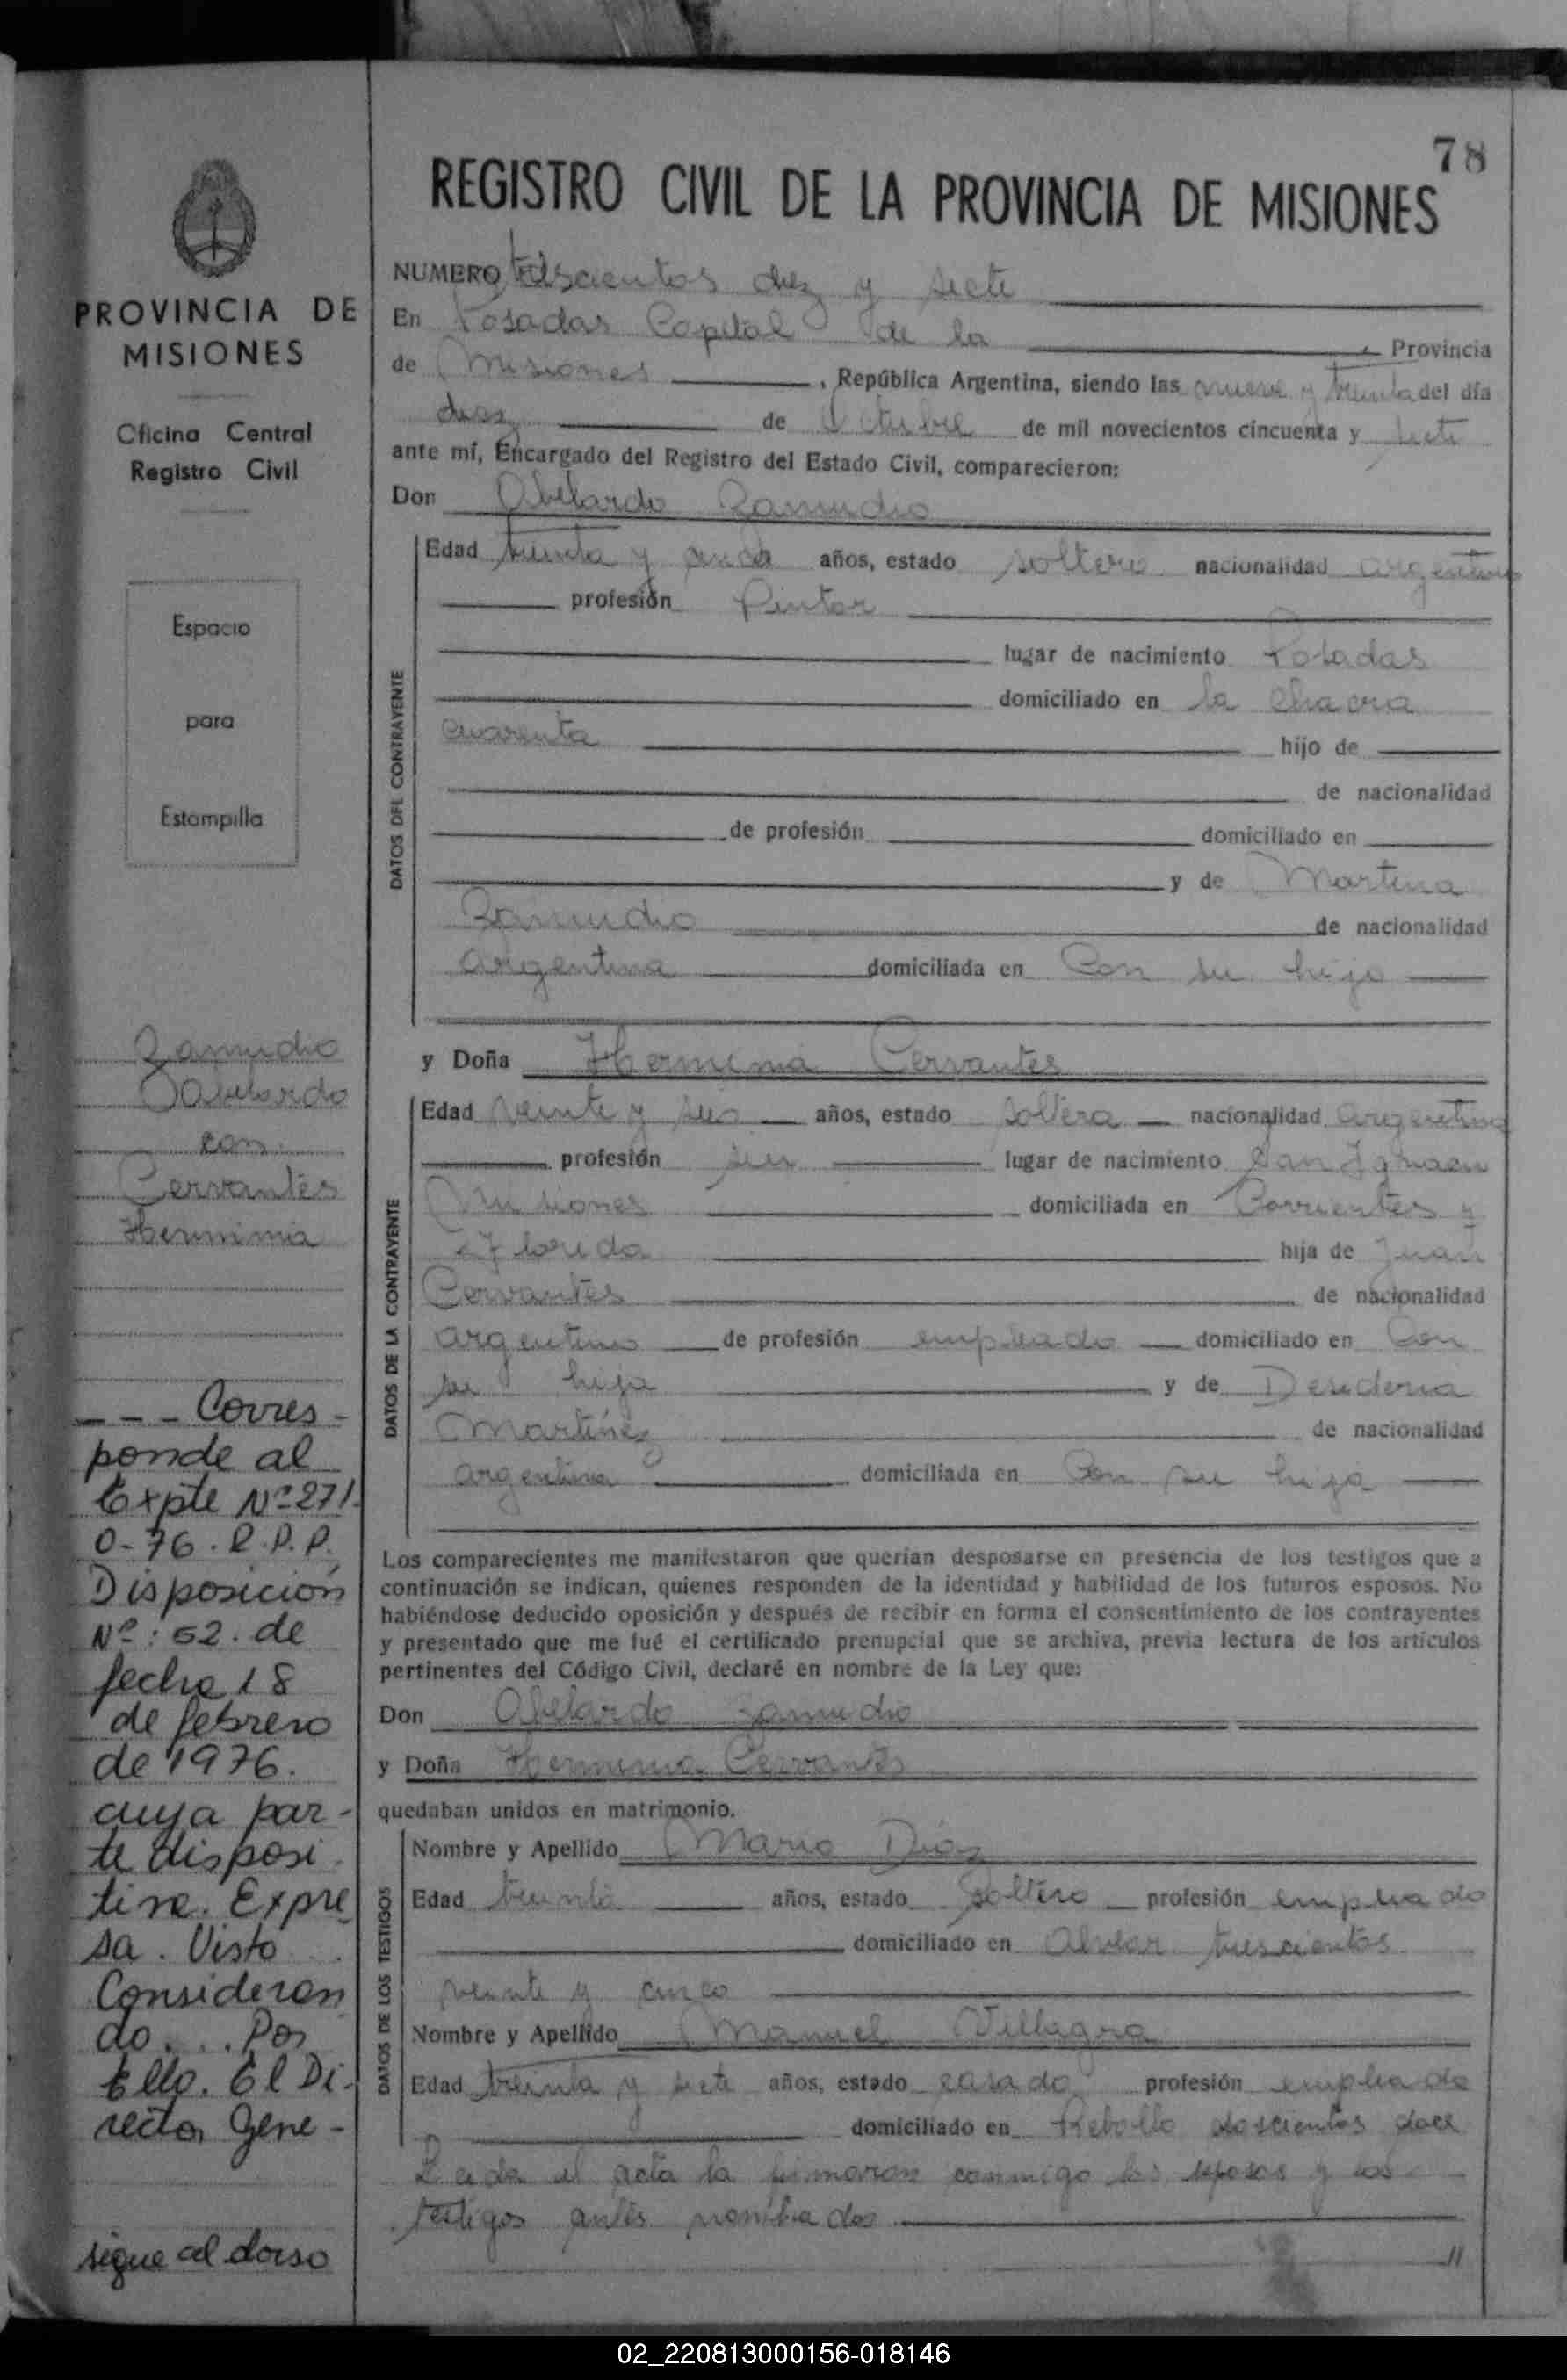 78
REGISTRO CIVIL DE LA PROVINCIA DE MISIONES
PROVINCIA DE
MISIONES
Oficina Central
Registro Civil
Espacio
para
Estampilla
Zamudio
Abelardo
con
Cervantes
Herminia
--- Corres-
ponde al
Expte Nº 271-
0-76. R.P.P.
Disposición
Nº: 52. de
fecha 18
de febrero
de 1976.
cuya par-
te disposi
tiva. Expre
sa. Visto
Consideran
do... Por
Ello. El Di-
rector Gene-
sigue al dorso
NUMERO trescientos diez y siete
En Posadas Capital de la Provincia
de Misiones, República Argentina, siendo las nueve y treinta del día
diez de Octubre de mil novecientos cincuenta y siete
ante mí, Encargado del Registro del Estado Civil, comparecieron:
Don Abelardo Zamudio
DATOS DEL CONTRAYENTE
Edad treinta y años, estado soltero nacionalidad argentino
profesión Pintor
lugar de nacimiento Posadas
domiciliado en la chacra
cuarenta hijo de
de nacionalidad
de profesión domiciliado en
y de Martina
Zamudio de nacionalidad
argentina domiciliada en Con su hijo
y Doña Herminia Cervantes
DATOS DE LA CONTRAYENTE
Edad veinte y seis años, estado soltera nacionalidad argentina
profesión lugar de nacimiento San Ignacio
Misiones domiciliada en Corrientes y
Florida hija de Juan
Cervantes de nacionalidad
argentino de profesión empleado domiciliado en Con
su hija y de Desideria
Martínez de nacionalidad
argentina domiciliada en Con su hija
Los comparecientes me manifestaron que querían desposarse en presencia de los testigos que a
continuación se indican, quienes responden de la identidad y habilidad de los futuros esposos. No
habiéndose deducido oposición y después de recibir en forma el consentimiento de los contrayentes
y presentado que me fué el certificado prenupcial que se archiva, previa lectura de los artículos
pertinentes del Código Civil, declaré en nombre de la Ley que:
Don Abelardo Zamudio
y Doña Herminia Cervantes
quedaban unidos en matrimonio.
DATOS DE LOS TESTIGOS
Nombre y Apellido Mario Díaz
Edad treinta años, estado soltero profesión empleado
domiciliado en Alvear trescientos
veinte y cinco
Nombre y Apellido Manuel Villagra
Edad treinta y siete años, estado casado profesión empleado
domiciliado en Rebollo doscientos doce
Leida el acta la firmaron conmigo los esposos y los
testigos antes nombrados //
02_220813000156-018146